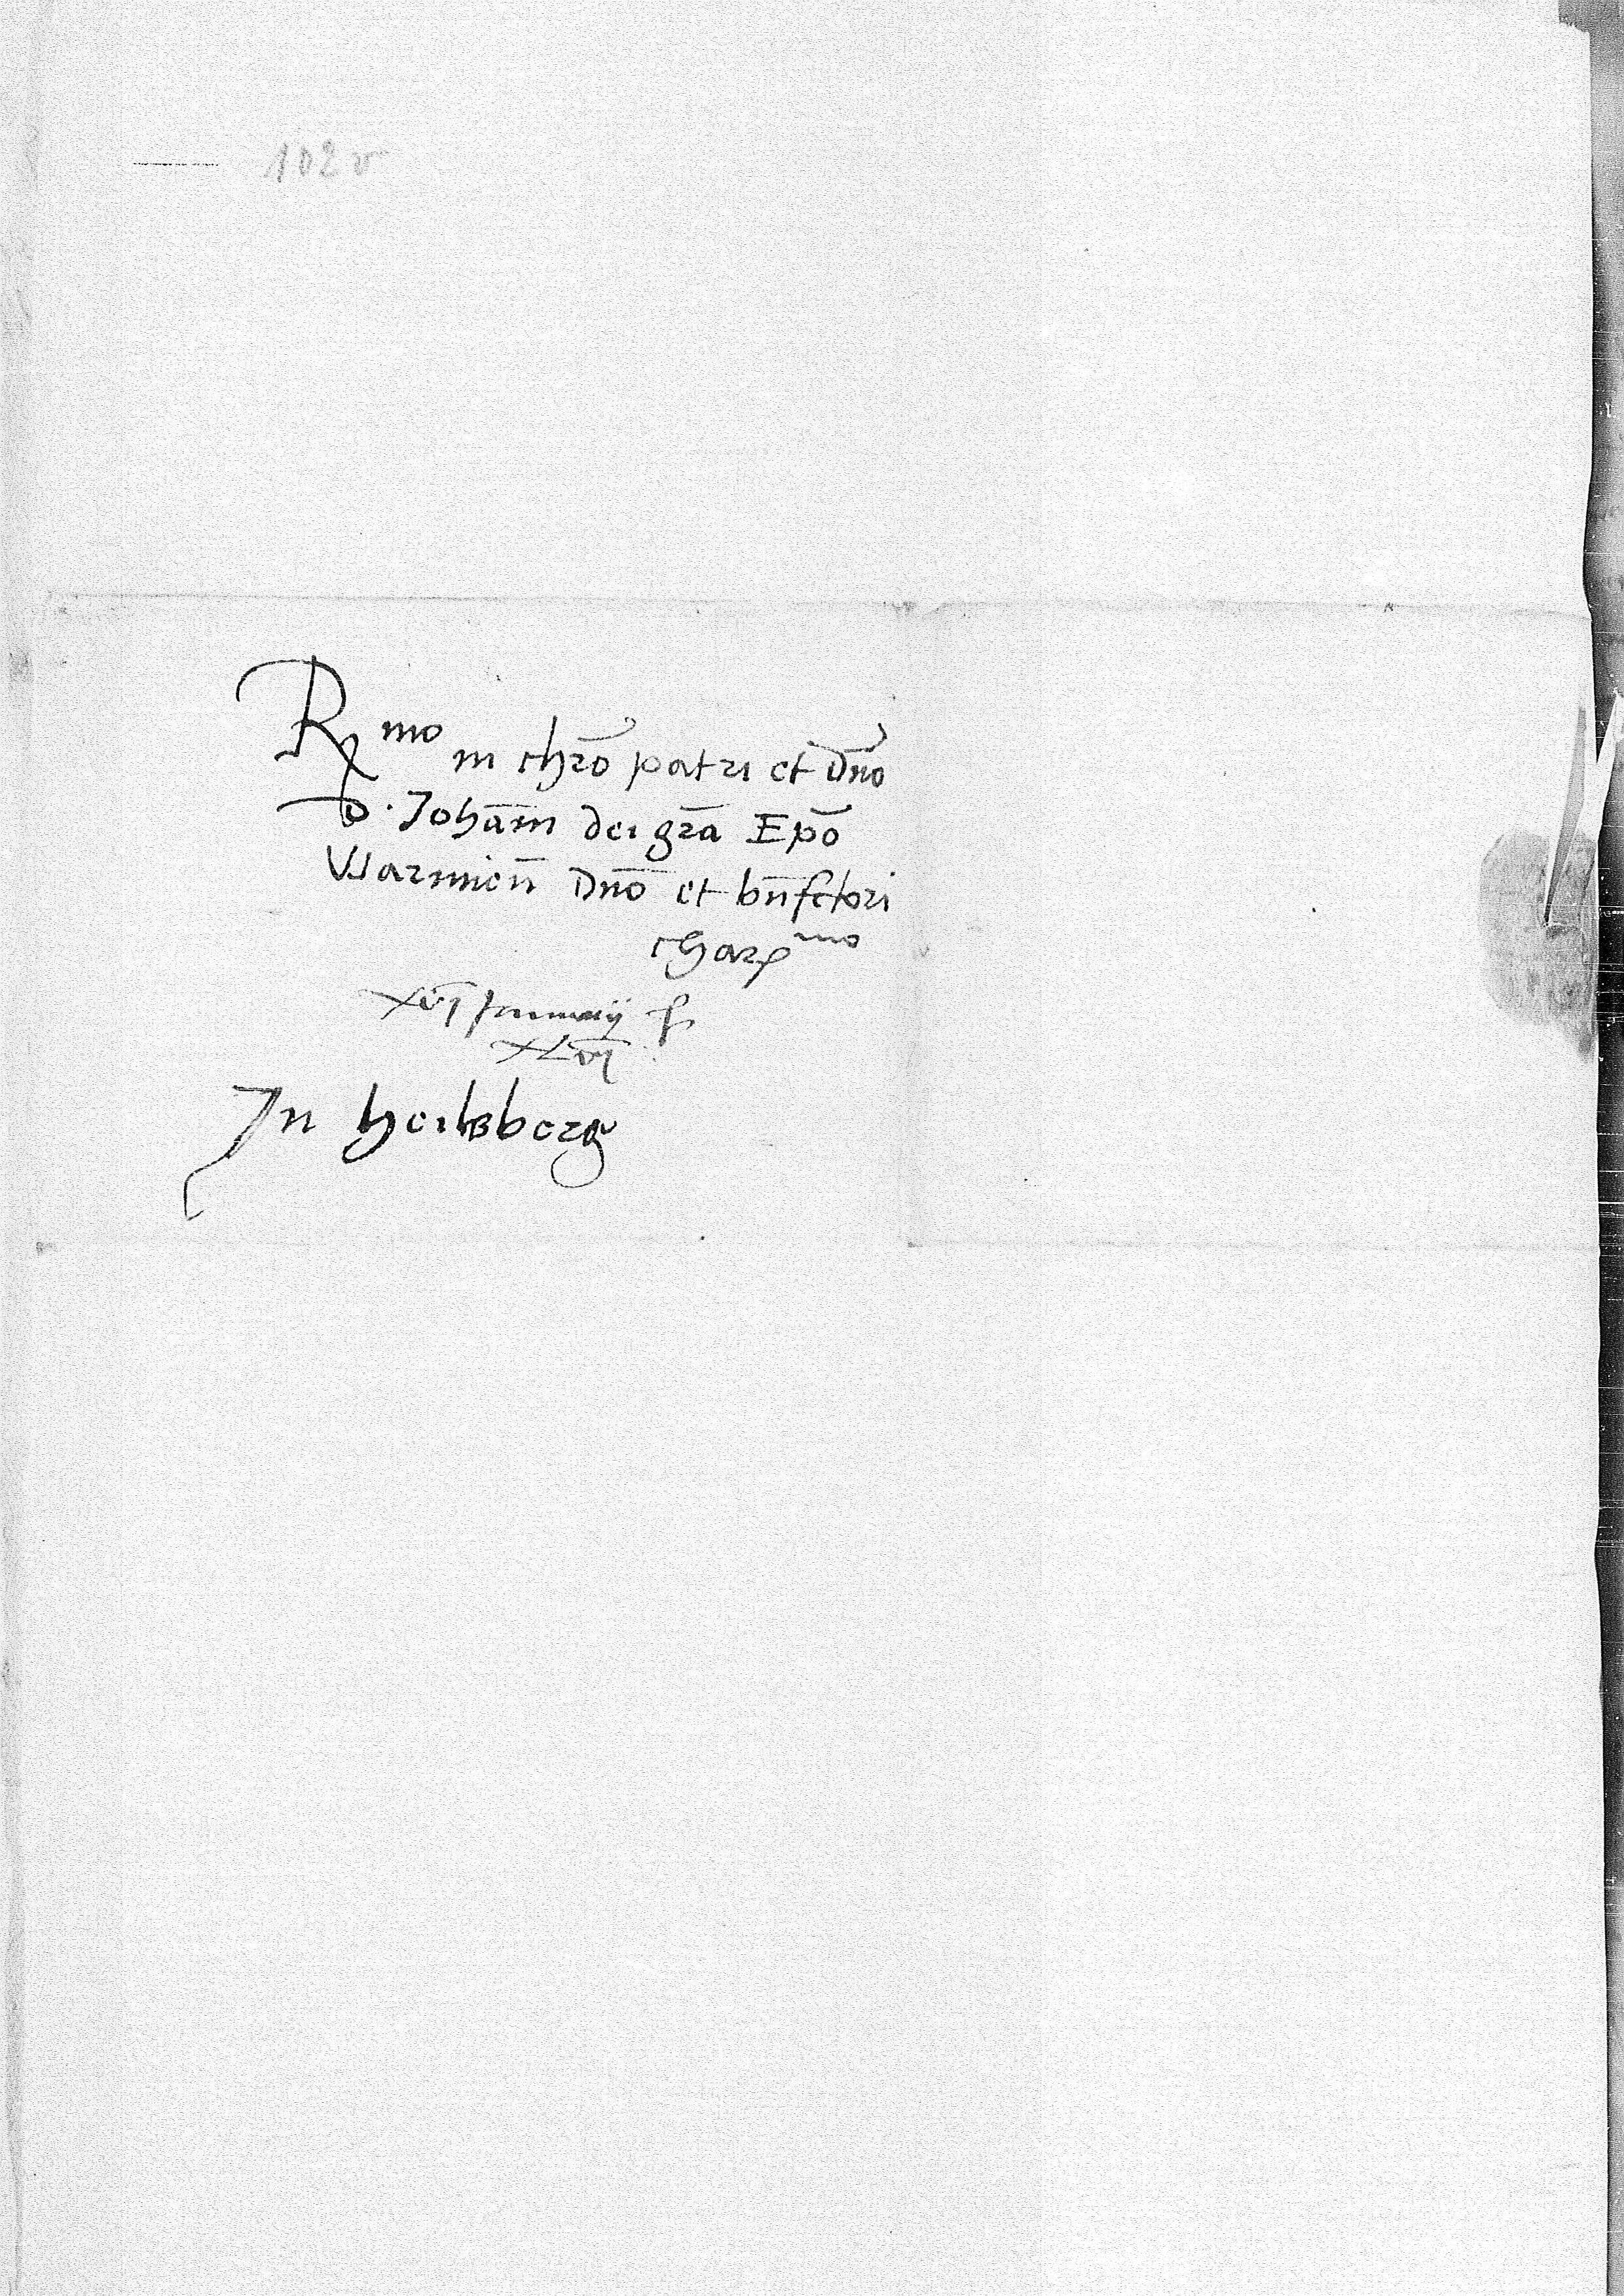 102 v
R mo in chro patri et Dno
D. Johann dei gra Epo
Warmien Dno et bnfctori
charmo
xvj Januarij
xlvij
In heilsberg